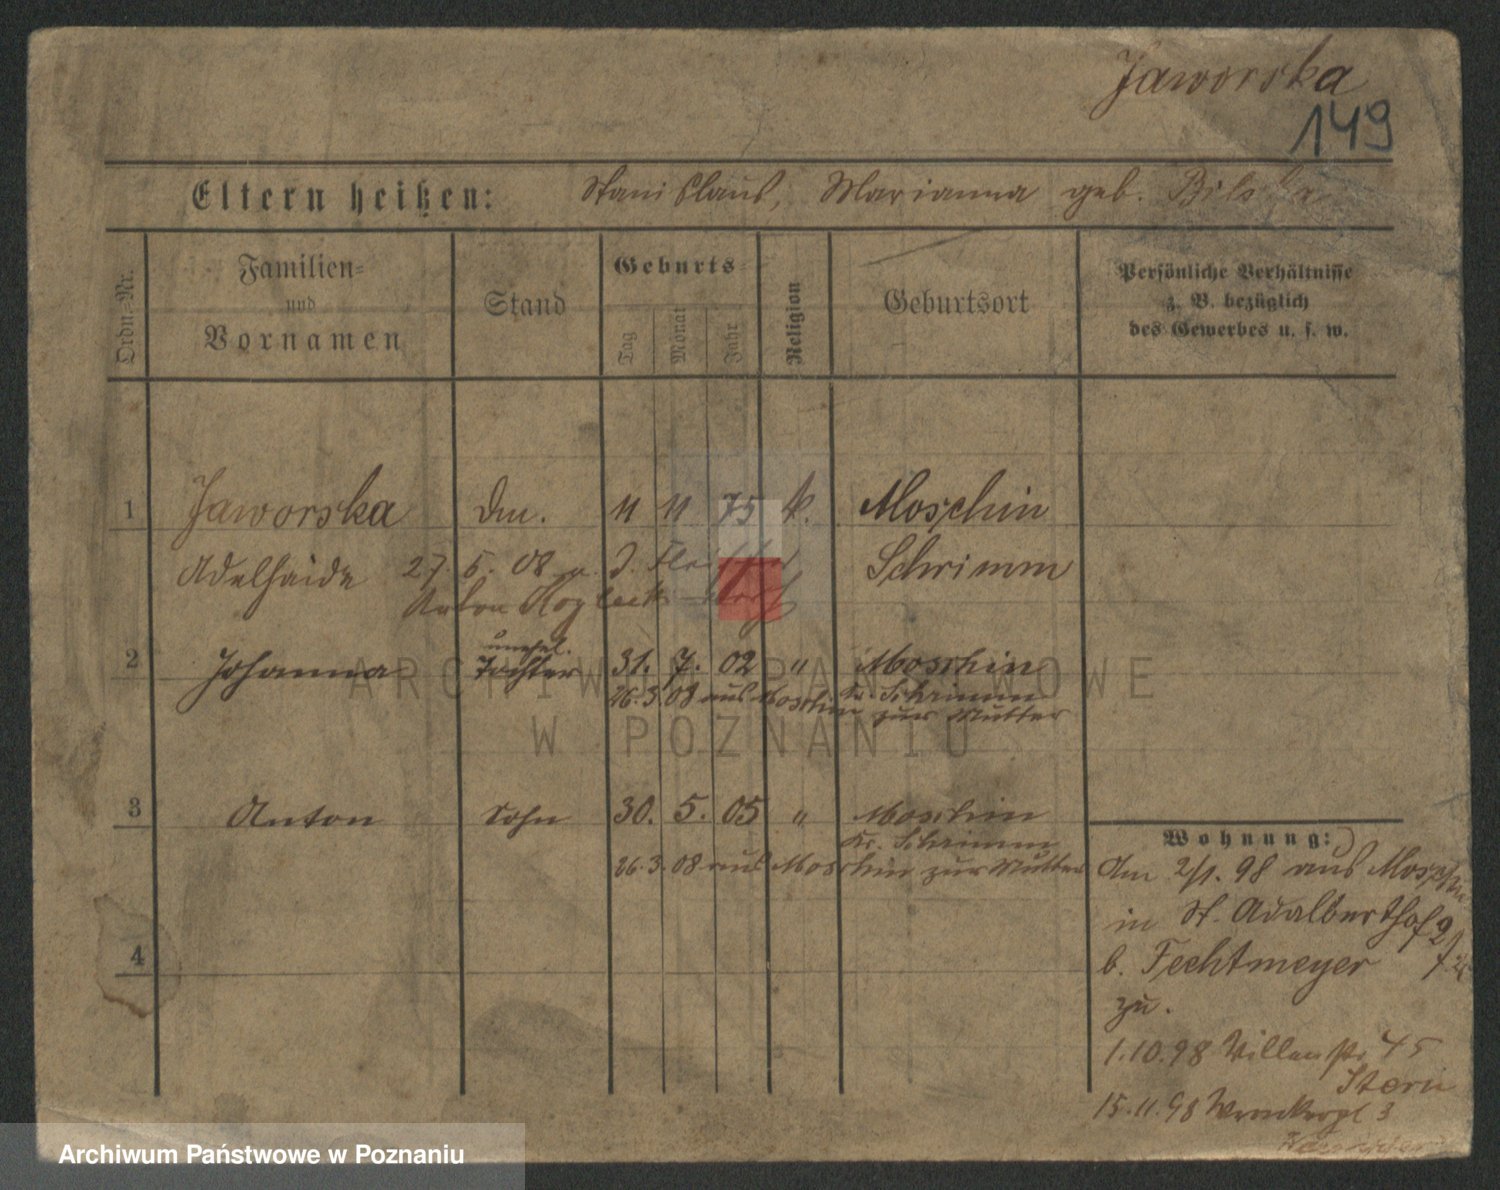 Jaworska
149
Eltern heißen: Stanislaus, Marianna geb. Bilska
Ordn.-Nr.
Familien-
und
Vornamen
Stand
Geburts-
Tag
Monat
Jahr
Religion
Geburtsort
Persönliche Verhältnisse
z. B. bezüglich
des Gewerbes u. s. w.
1 Jaworska Dm. 11 11 75 k. Moschin
Adelhaide 27. 5. 08 Schrimm
Anton
2 Johanna unehel. Tochter 31. 7. 02 " Moschin
Kr. Schrimm
26.3.08 aus Moschin zur Mutter
3 Anton Sohn 30. 5. 05 " Moschin
Kr. Schrimm
26.3.08 aus Moschin zur Mutter
4
Wohnung:
Am 2/1. 98 aus Moschin
in St. Adalberthof 2
b. Fechtmeyer
zu.
1.10.98 Villenstr 45
Stern
15.11.98 Wronkerpl 3
ARCHIWUM PAŃSTWOWE
W POZNANIU
Archiwum Państwowe w Poznaniu